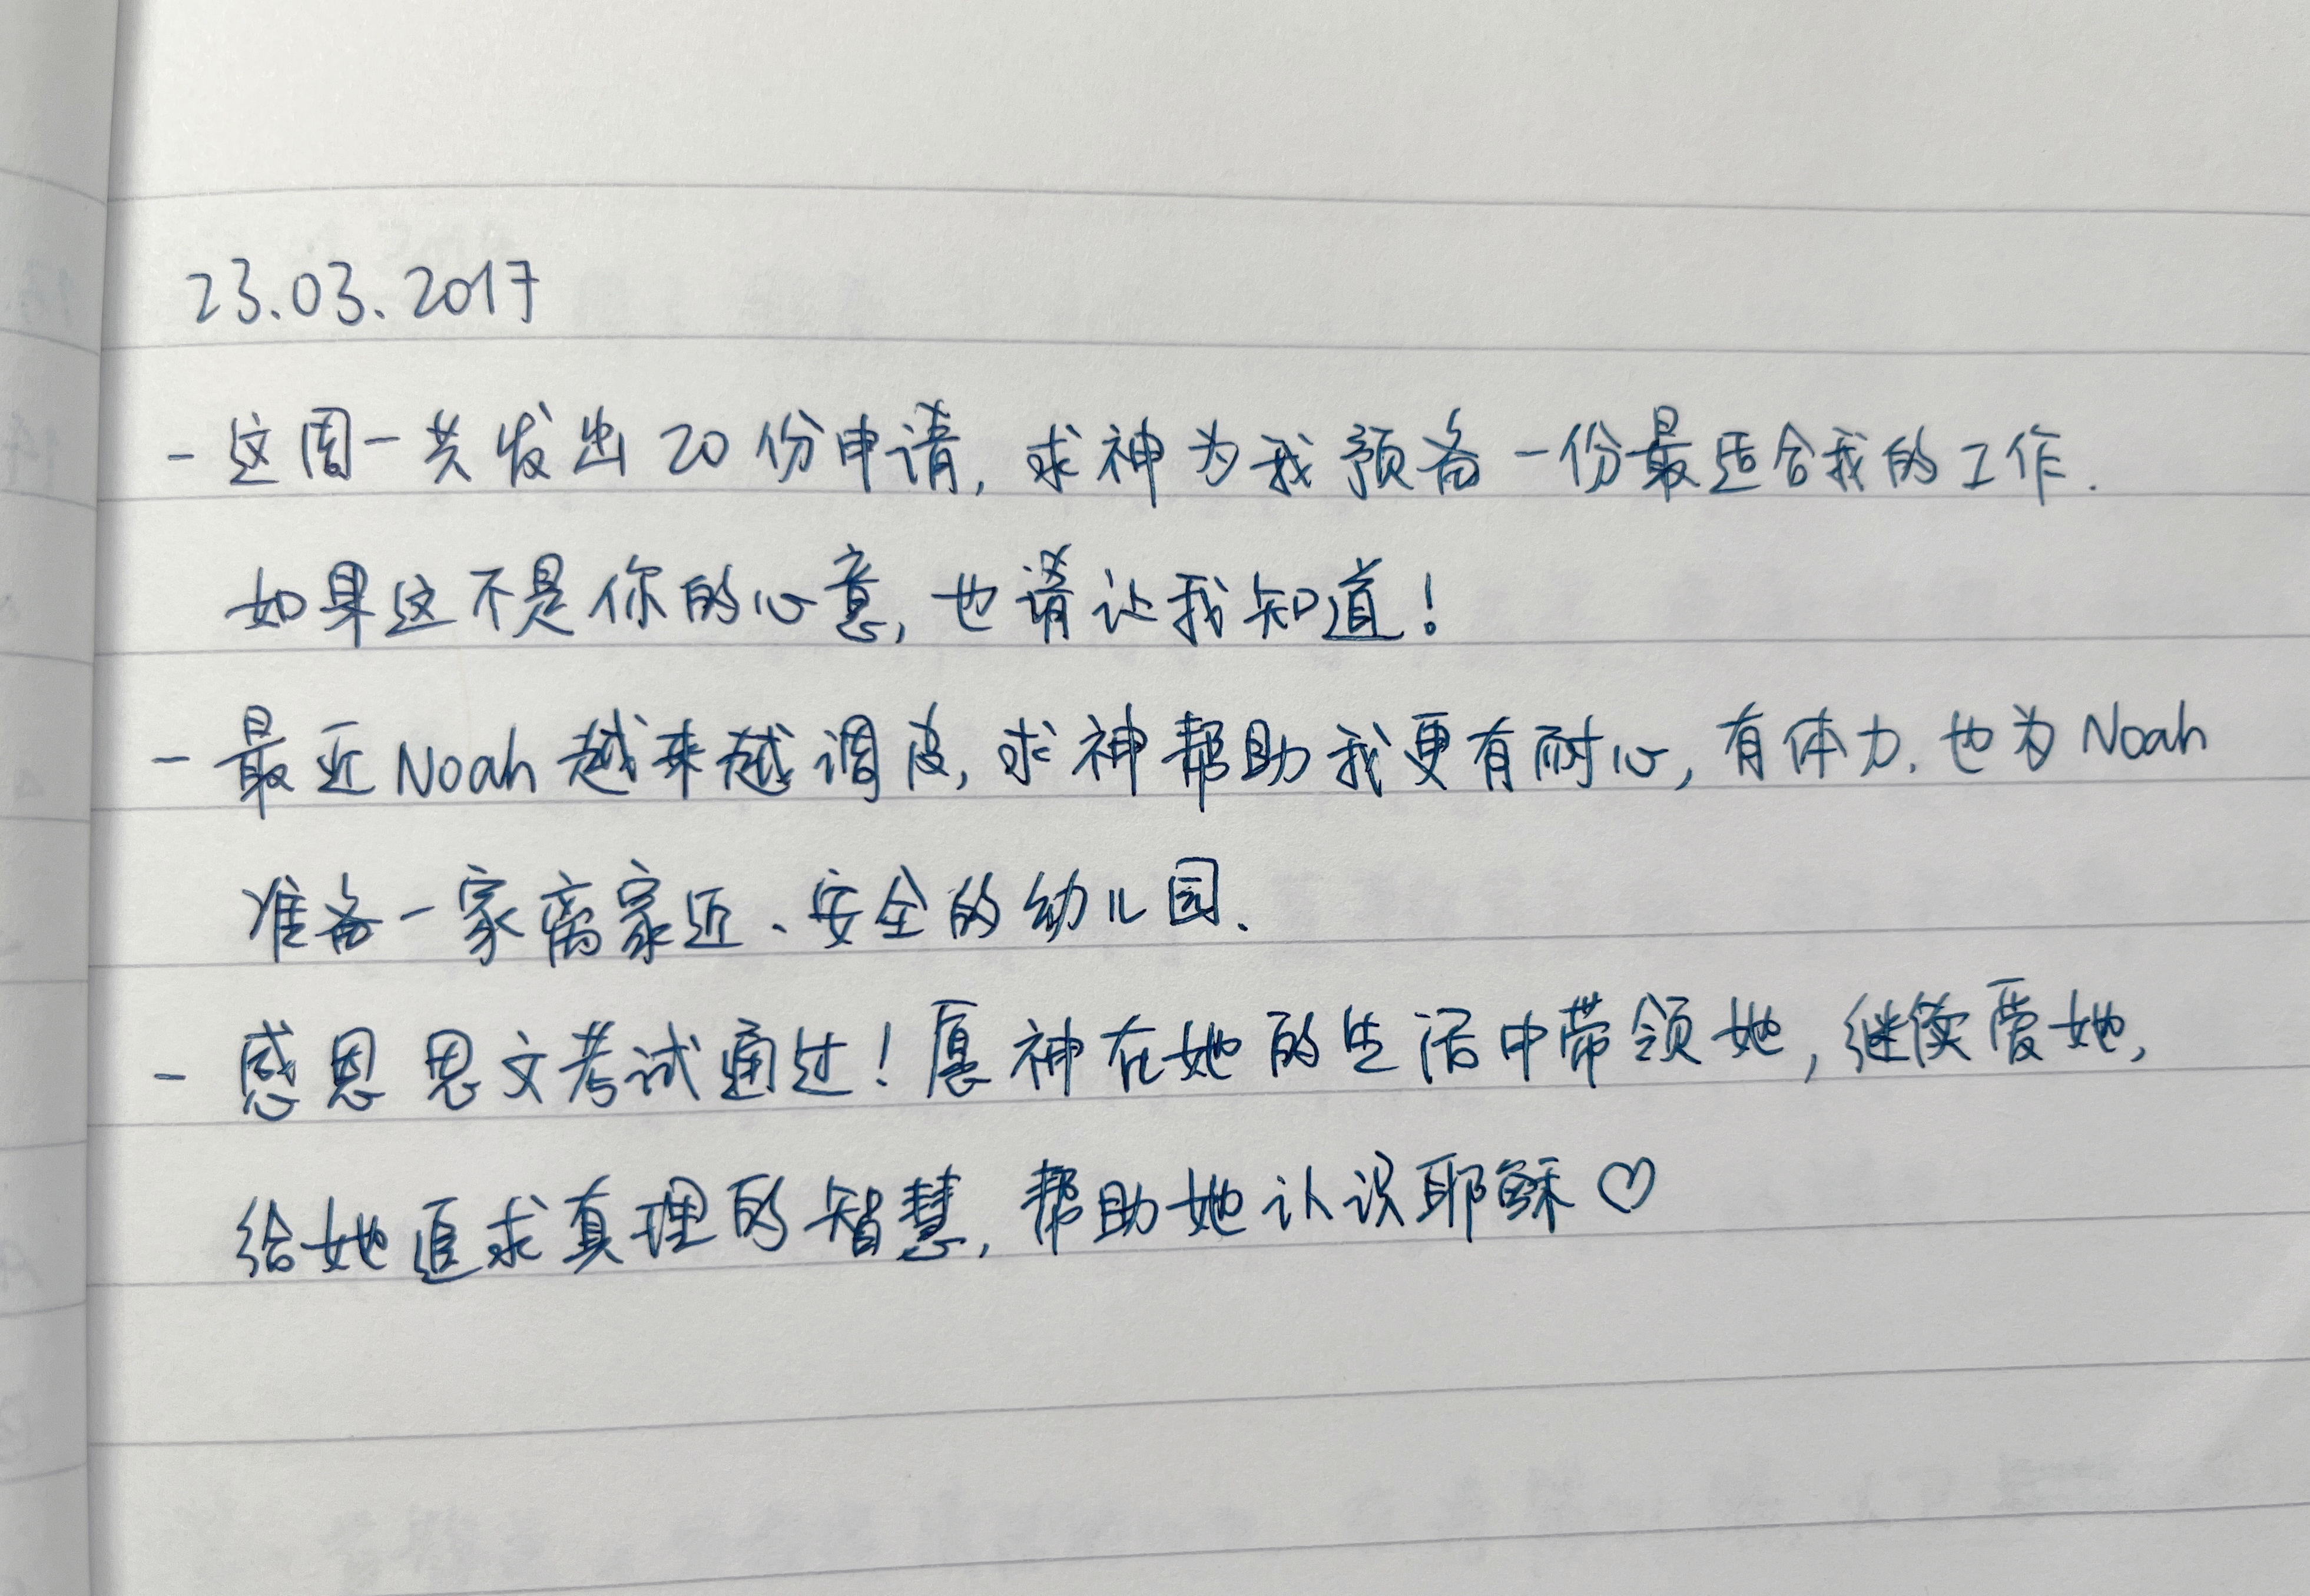 23.03.2017
- 这周一共发出20份申请, 求神为我预备一份最适合我的工作.
如果这不是你的心意, 也请让我知道!
- 最近Noah越来越调皮, 求神帮助我更有耐心, 有体力. 也为Noah
准备一家离家近、安全的幼儿园.
- 感恩思文考试通过! 愿神在她的生活中带领她, 继续爱她,
给她追求真理的智慧, 帮助她认识耶稣♡